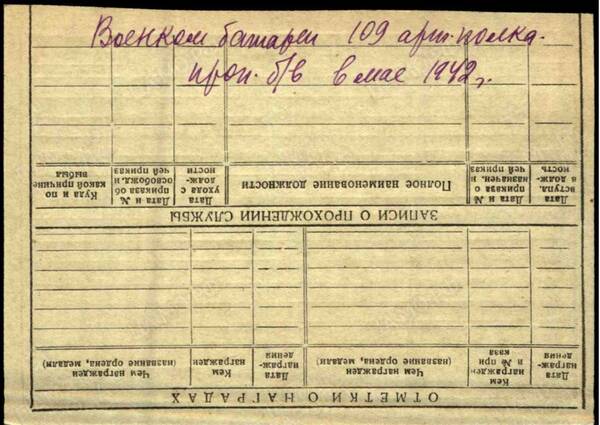 Военком батареи 109 арт. полка.
проп. б/в в мае 1942 г.
ОТМЕТКИ О НАГРАДАХ
Дата
награж-
дения
Кем
награжден
и № при-
каза
Чем награжден
(название ордена, медали)
Дата
награж-
дения
Кем
награжден
Чем награжден
(название ордена, медали)
ЗАПИСИ О ПРОХОЖДЕНИИ СЛУЖБЫ
Дата
вступл.
в долж-
ность
Дата и №
приказа о
назначен. и
чей приказ
Полное наименование должности
Дата
ухода с
долж-
ности
Дата и №
приказа об
освобожд. и
чей приказ
Куда и по
какой причине
выбыл